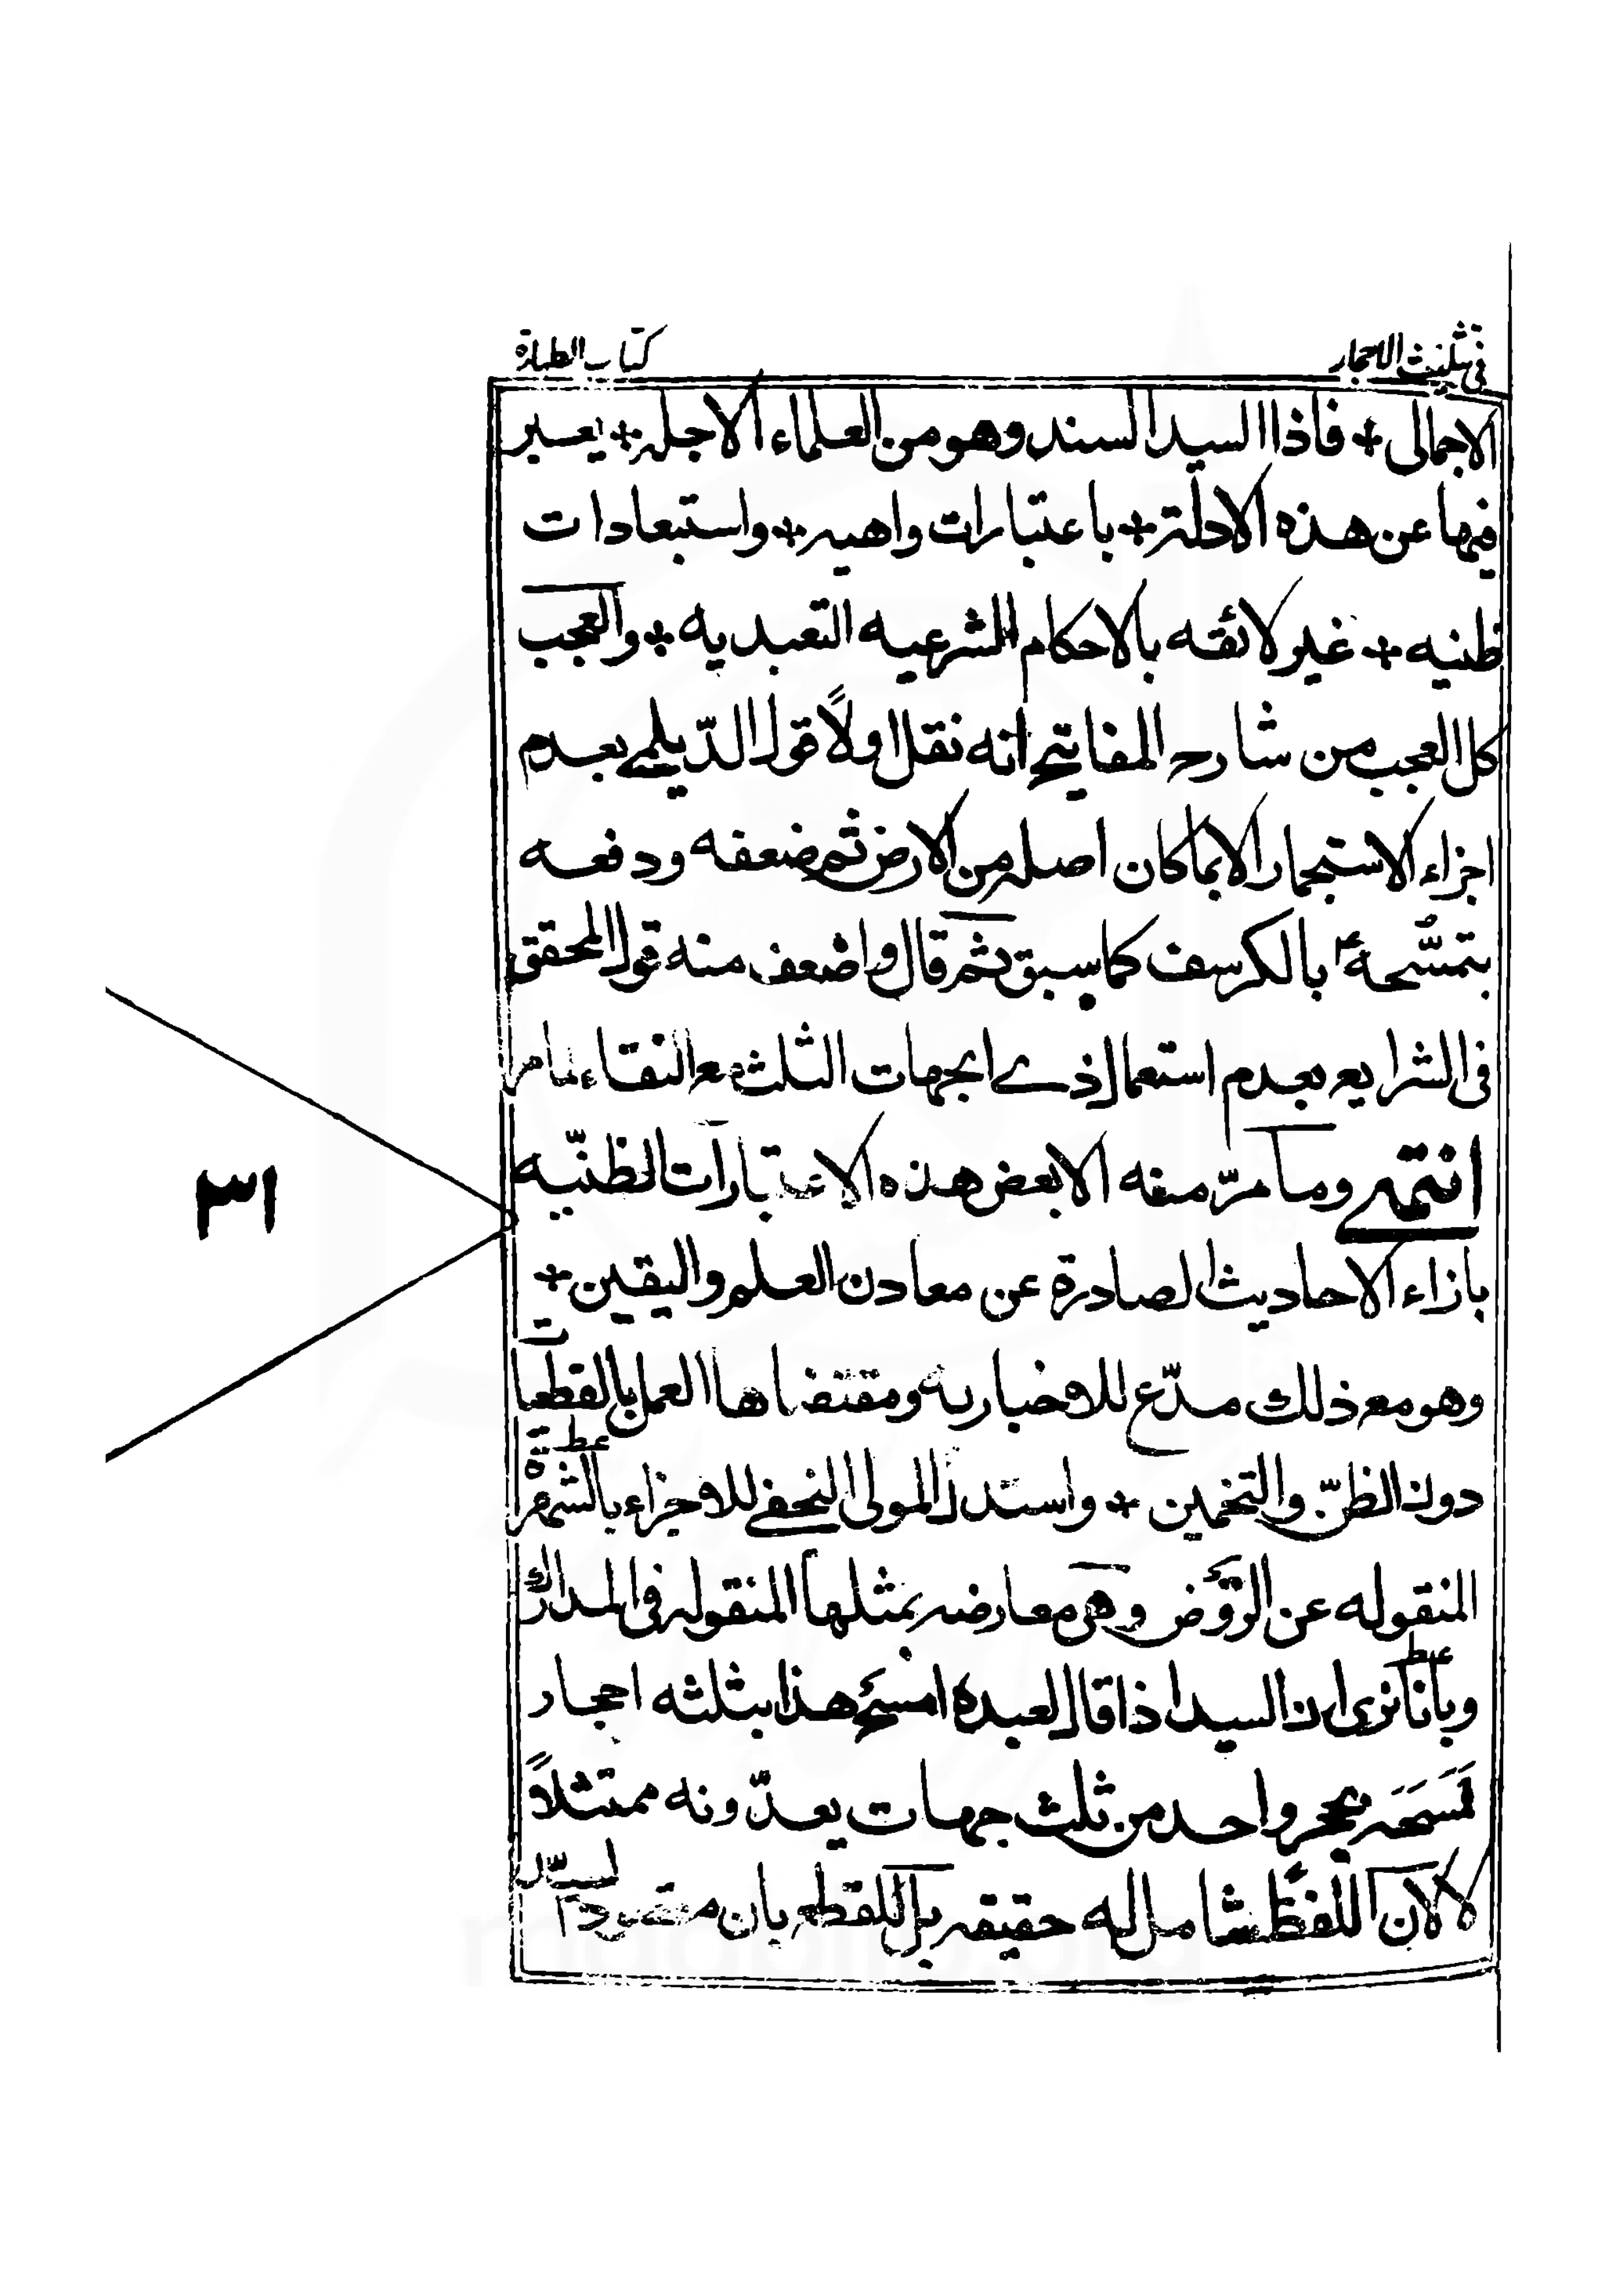 في تثليث الاحجار
كتاب الطهارة
الاجمالى * فاذا السيد السند وهو من العلماء الاجله * يعبر
فيها عن هذه الادلة * باعتبارات واهيه * واستبعادات
ظنيه * غير لائقه بالاحكام الشرعيه التعبديه * والعجب
كل العجب من شارح المفاتيح انه نقل اولاً قول الدّيلمي بعدم
اجزاء الاستجمار الا بما كان اصله من الارض ثم ضعفه ودفعه
بتمسّحهٖ بالكرسف كما سبق ثم قال واضعف منه قول المحقق
فى الشرايع بعدم استعمال ذي الجهات الثلث مع النقاء لما مر
انتهى وما مرّ منه الا بعض هذه الاعتبارات الظنّيه
بازاء الاحاديث الصادرة عن معادن العلم واليقين *
وهو مع ذلك مدّع للاخباريه ومقتضاها العمل بالقطعيات
دون الظنّ والتخمين * واستدل المولى النجفي للاجزاء بالشهرة
المنقوله عن الرّوض وهى معارضه بمثلها المنقوله فى المدارك
وبأنا نرى ان السيد اذا قال لعبده امسح هذا بثلثه احجار
فمسحه بحجر واحد من ثلث جهات يعدّونه ممتثلاً
لا لان اللفظ شامل له حقيقه بل للقطع بان مقصود السيّد
٣١